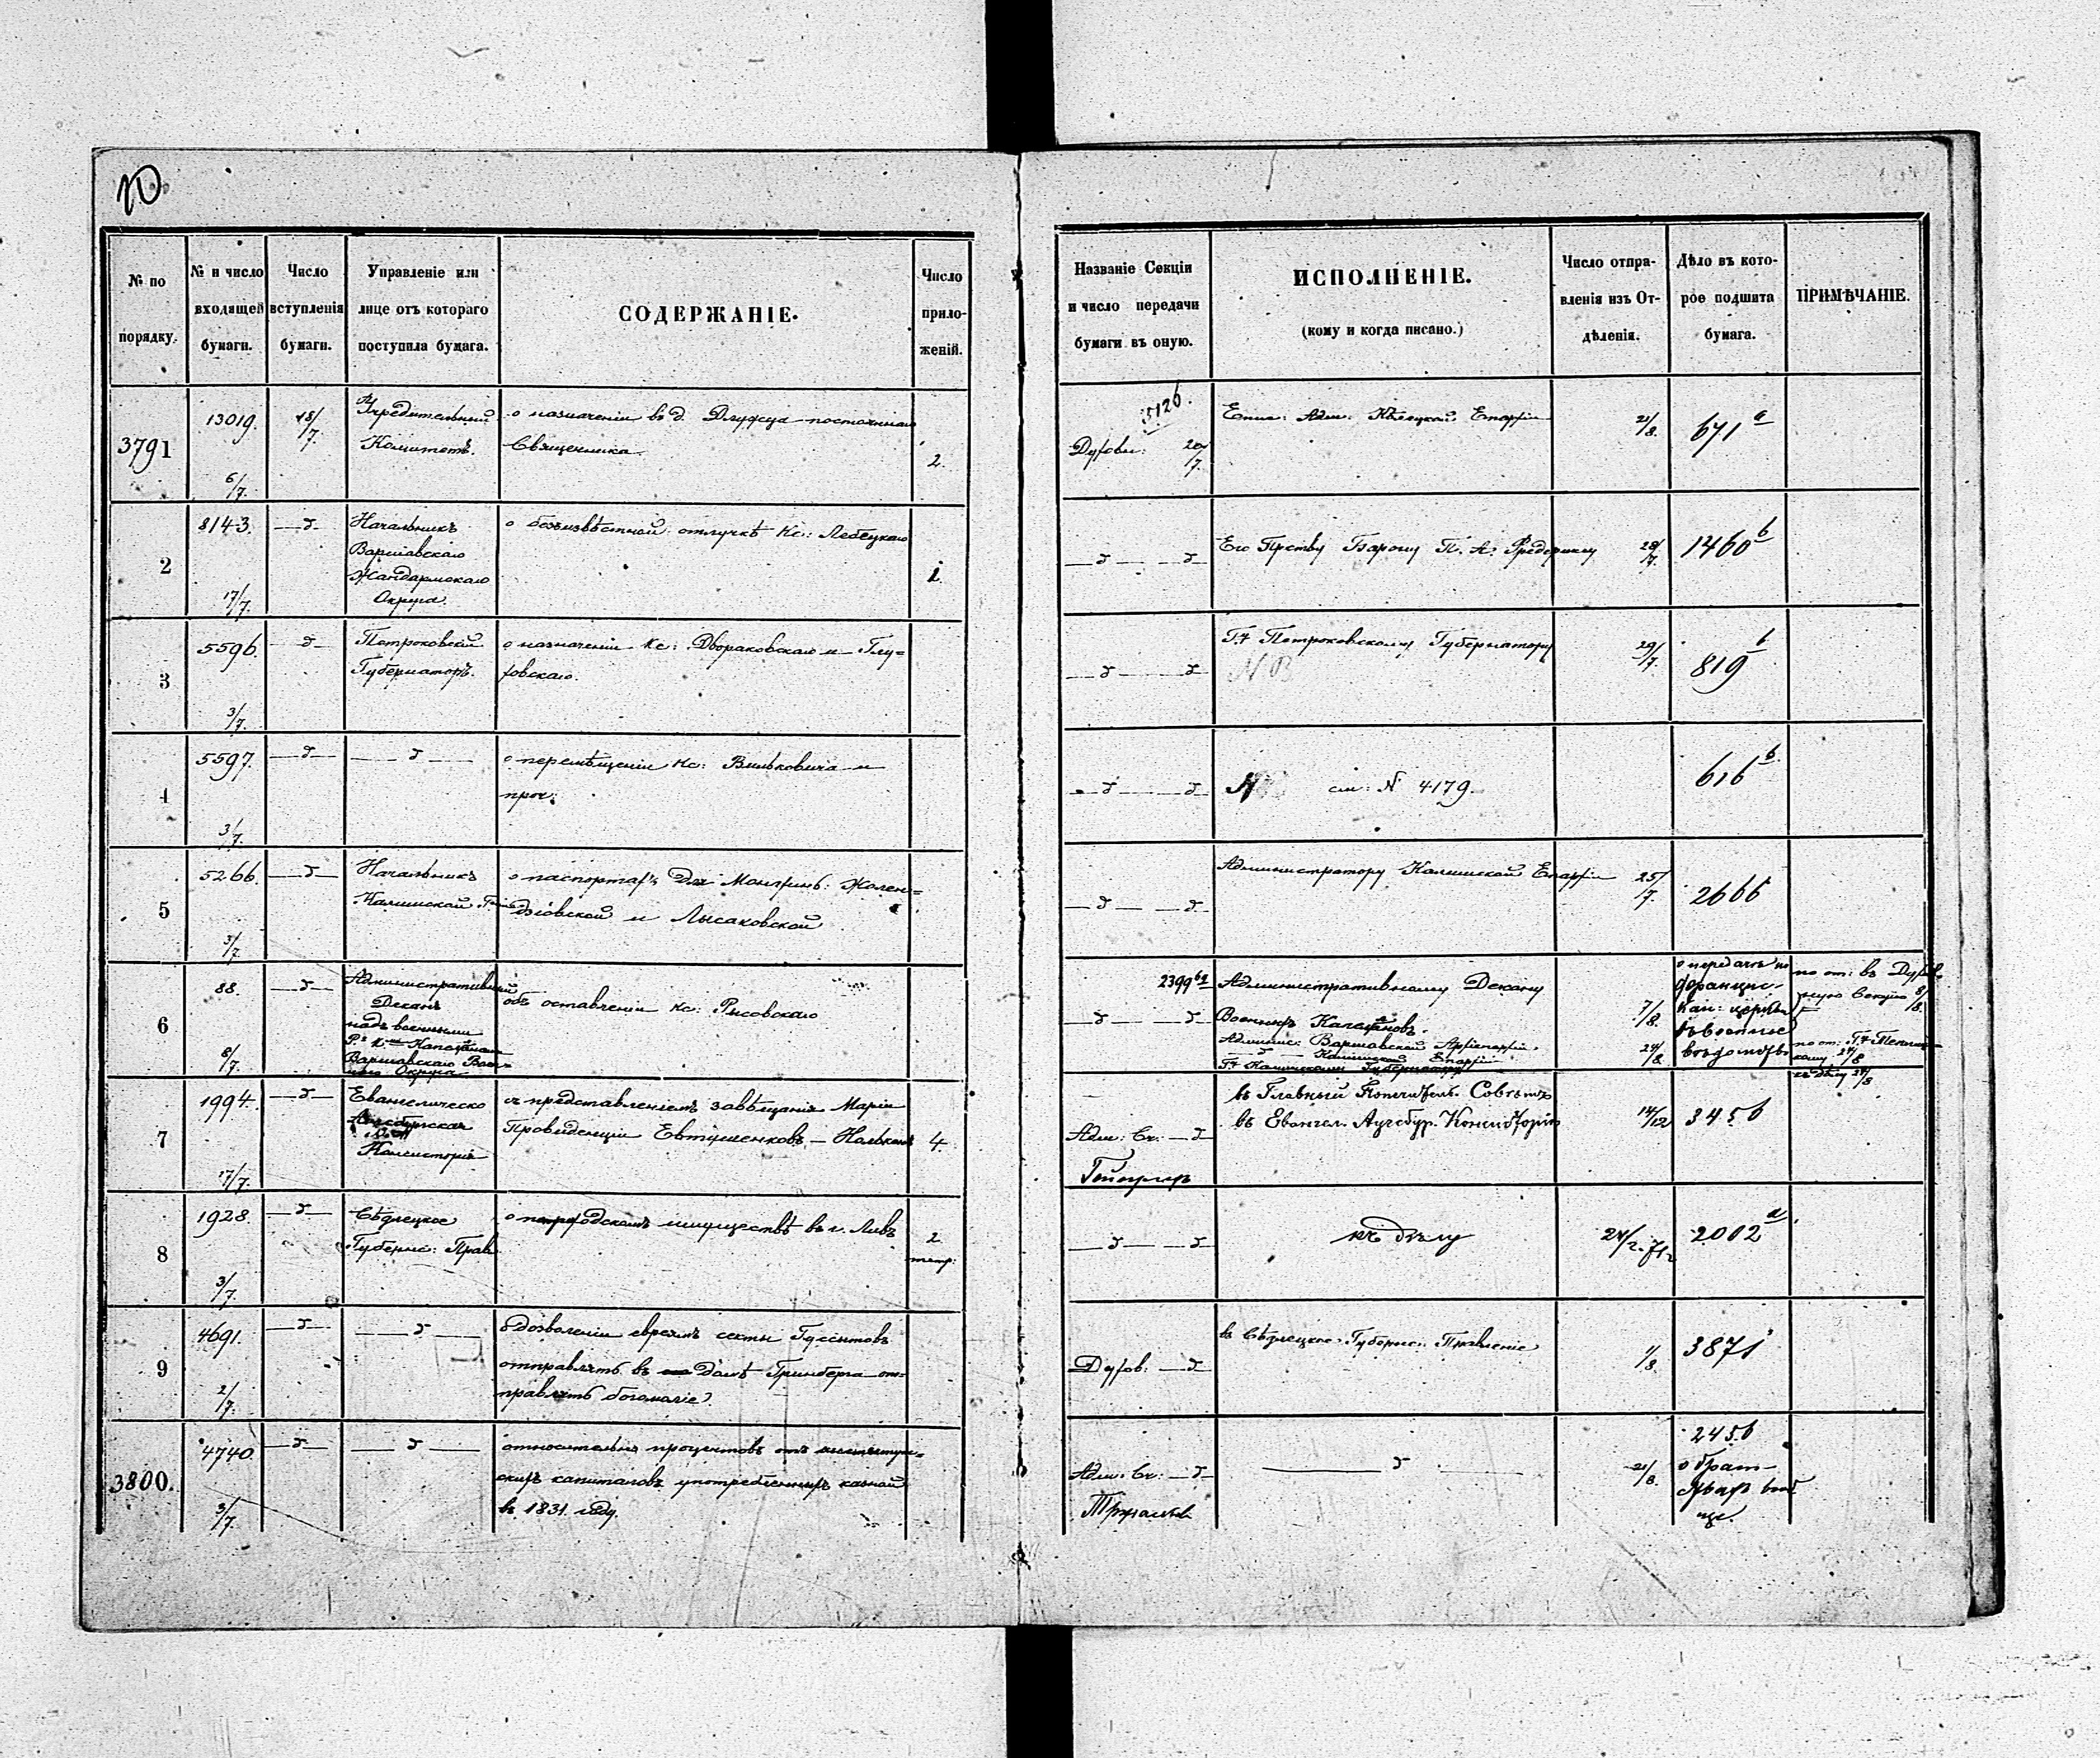 10
№ по порядку.
№ и число входящей бумаги.
Число вступленія бумаги.
Управленіе или лице отъ котораго поступила бумага.
СОДЕРЖАНІЕ.
Число приложеній.
Названіе Секціи и число передачи бумаги въ оную.
ИСПОЛНЕНІЕ.
(кому и когда писано.)
Число отправленія изъ Отдѣленія.
Дѣло въ которое подшита бумага.
ПРИМѢЧАНІЕ.
3791
13019.
6/7.
18/7.
Учредительный
Комитетъ.
о назначеніи въ д. постояннаго
Священника
2.
5126.
Духовн: 20/7.
Адм: Кѣлецкой Епархіи
21/8.
671 a
2
8143.
17/7.
— д —
Начальникъ
Варшавскаго
Жандармскаго
Округа.
о безъизвѣстной отлучкѣ Кс: Лебецкаго
1.
— д — — д
Его Прству Барону П. А. Фредериксу
28/7.
1460 b
3
5596.
3/7.
— д —
Петроковскій
Губернаторъ.
о назначеніи Кс: Двораковскаго и Глу=
ховскаго.
— д — — д
Г.+ Петроковскому Губернатору
NB
29/7.
819 b
4
5597.
3/7.
— д —
— д —
о перемѣщеніи Кс: Вильковича и
проч:
— д — — д
см: N 4179.
616 b.
5
5266.
3/7.
— д —
Начальникъ
Калишской
о паспортахъ для Монахинь: Жолен=
дзіовской и Лысаковской
— д — — д
Администратору Калишской Епархіи
25/7.
2666
6
88.
8/7.
— д —
Административный
Деканъ
надъ военными
Варшавскаго Воен-
наго Округа
объ оставленіи Кс: Рысовскаго
2399
— д — — д
Административному Декану
Военныхъ Капелановъ.
Админис: Варшавской Архіепархіи.
— д — Калишской Епархіи
Г.+ Калишскому Губернатору
7/8.
24/8
о передачѣ по
францис-
кан: церкви
въ военное
вѣдомство
по от: въ Духов-
ную Секцію 8/8.
къ дѣлу 24/8
7
1994.
17/7.
— д —
Евангелическо
Аугсбургская
Консисторія
съ представленіемъ завѣщанія Маріи
Провиденціи Евтушенковъ —
4.
Адм: Ск: — д
въ Главный Попечитель. Совѣтъ
въ Евангел. Аугсбург. Консисторію
14/12
345 b
8
1928.
3/7.
— д —
Сѣдлецкое
Губернс: Прав
о имуществѣ въ г. Ливѣ
2
тетр:
— д — — д
къ дѣлу
2002 a
9
4691.
2/7.
— д —
— д —
о дозволеніи евреямъ секты Гуситовъ
отправлять въ домѣ Гринберга от=
правлять богомоліе.
Духов: — д
въ Сѣдлецкое Губернс: Правленіе
1/8.
3871
3800.
4740.
3/7.
— д —
— д —
относительно процентовъ отъ
скихъ капиталовъ употребленныхъ казной
въ 1831 году.
Адм. Ск: — д
— д —
21/8.
245 b
о брат-
ствахъ вооб
ще.